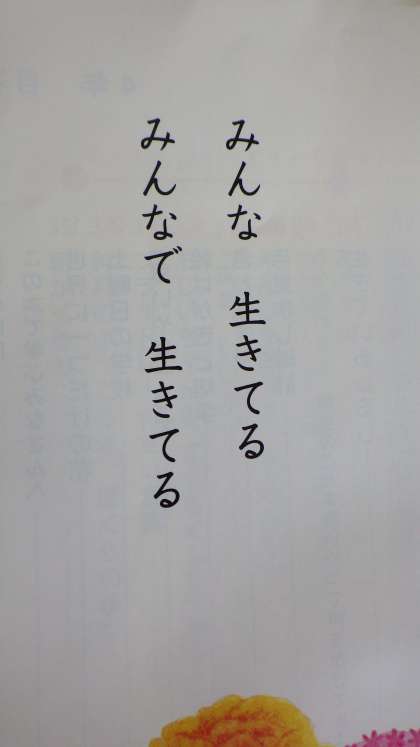 みんな　生きてる
みんなで　生きてる